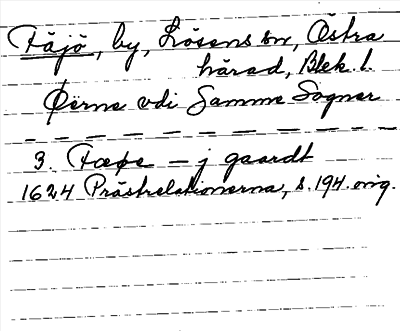 Fäjö, by, Lösens sn, Östra
härad, Blek. l.
Øerne udi Samme Sogner
3. Fæøe - j gaardt
1624 Prästrelationerna, s. 194. orig.